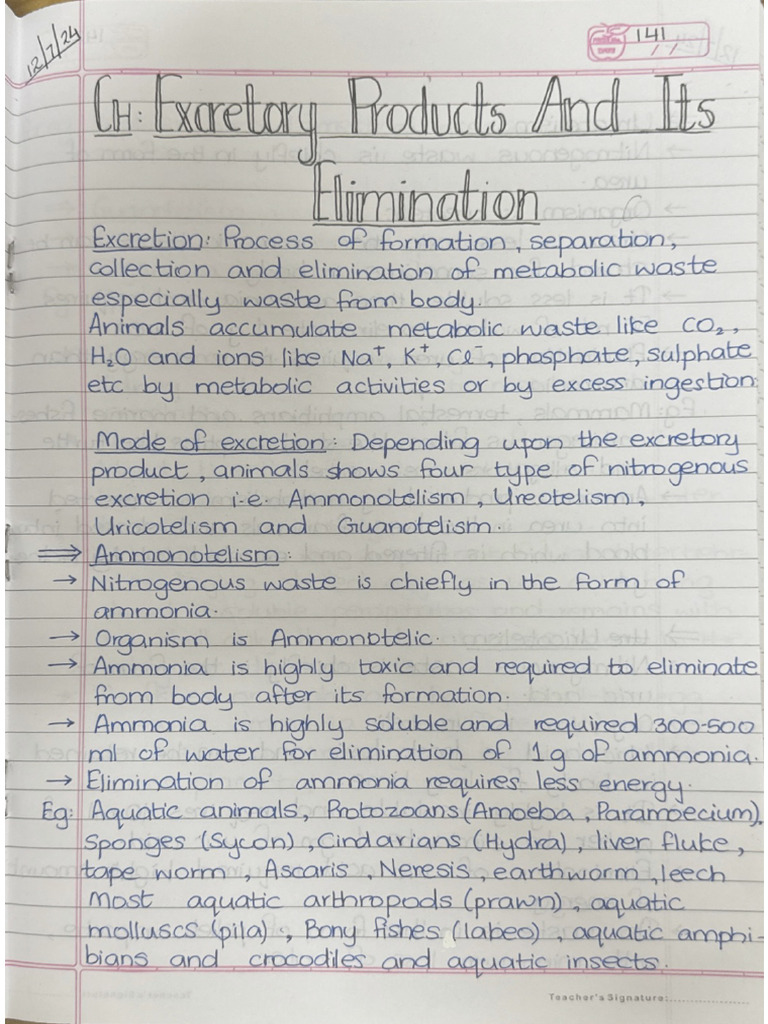 12/7/24
141
CH: Excretory Products And Its
Elimination
Excretion: Process of formation, separation,
collection and elimination of metabolic waste
especially waste from body.
Animals accumulate metabolic waste like CO₂,
H₂O and ions like Na⁺, K⁺, Cl⁻, phosphate, sulphate
etc by metabolic activities or by excess ingestion.
Mode of excretion: Depending upon the excretory
product, animals shows four type of nitrogenous
excretion i.e. Ammonotelism, Ureotelism,
Uricotelism and Guanotelism.
⇒ Ammonotelism:
→ Nitrogenous waste is chiefly in the form of
ammonia.
→ Organism is Ammonotelic.
→ Ammonia is highly toxic and required to eliminate
from body after its formation.
→ Ammonia is highly soluble and required 300-500
ml of water for elimination of 1g of ammonia.
→ Elimination of ammonia requires less energy.
Eg: Aquatic animals, Protozoans (Amoeba, Paramoecium),
sponges (Sycon), Cindarians (Hydra), liver fluke,
tape worm, Ascaris, Neresis, earthworm, leech
Most aquatic arthropods (prawn), aquatic
molluscs (pila), Bony fishes (labeo), aquatic amphi-
bians and crocodiles and aquatic insects.
Teacher's Signature: